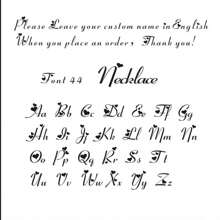 Please Leave your custom name inEnglish
When you place an order, Thank you!
Font 44 Necklace
Aa Bb Cc Dd Ee Ff Gg
Hh Ii Jj Kk Ll Mm Nn
Oo Pp Qq Rr Ss Tt
Uu Vv Ww Xx Yy Zz